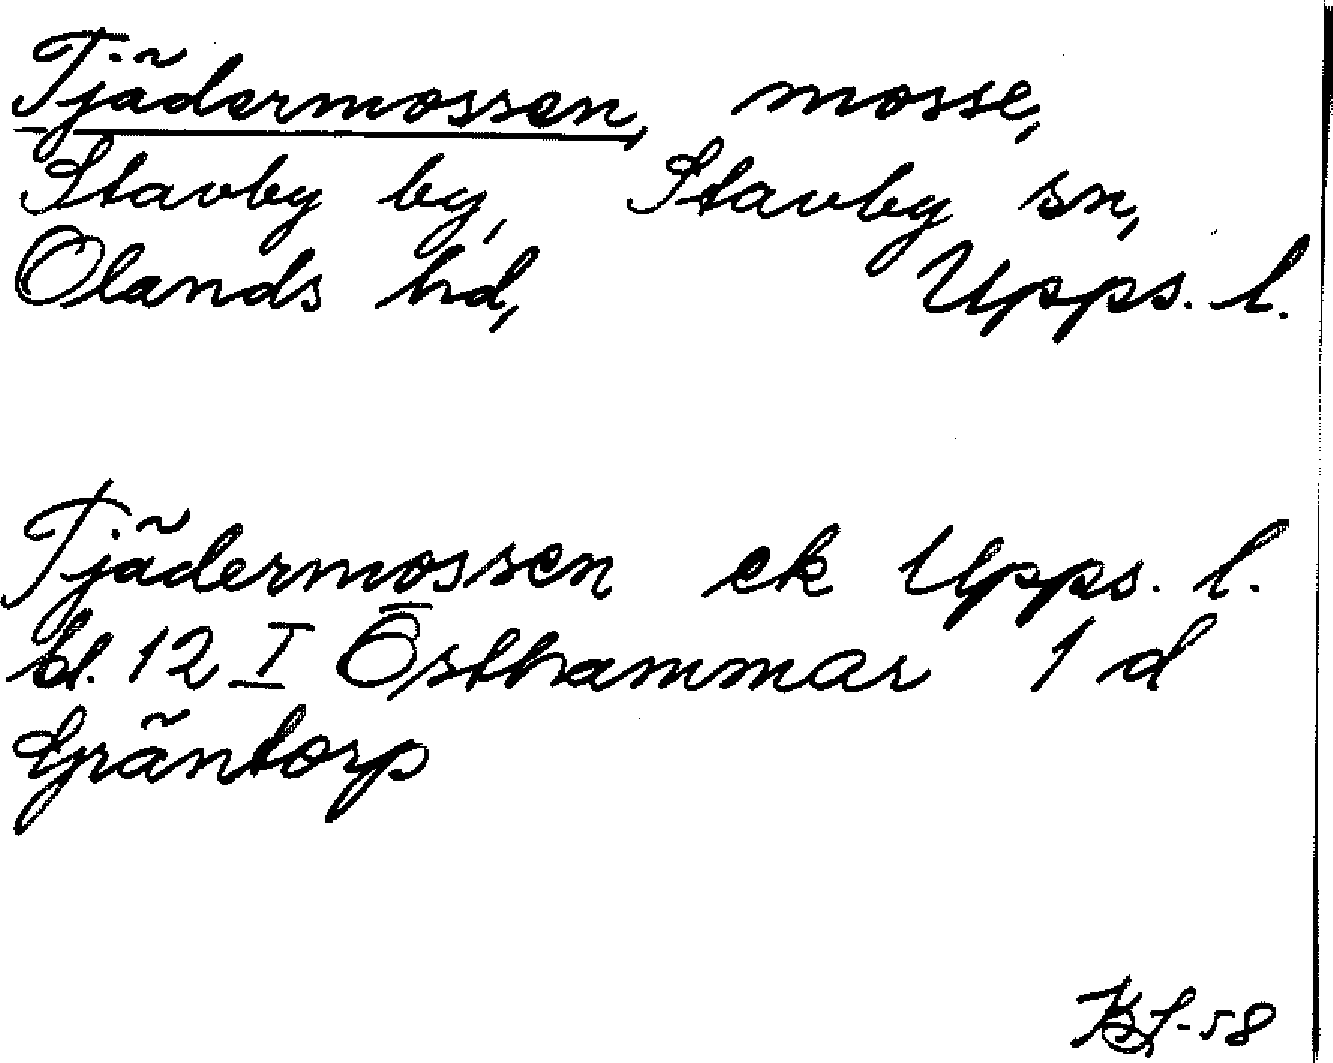 Tjädermossen, mosse,
Stavby by, Stavby sn,
Olands hd, Upps. l.
Tjädermossen ek Upps. l.
bl. 12 I Östhammar 1 d
Gräntorp